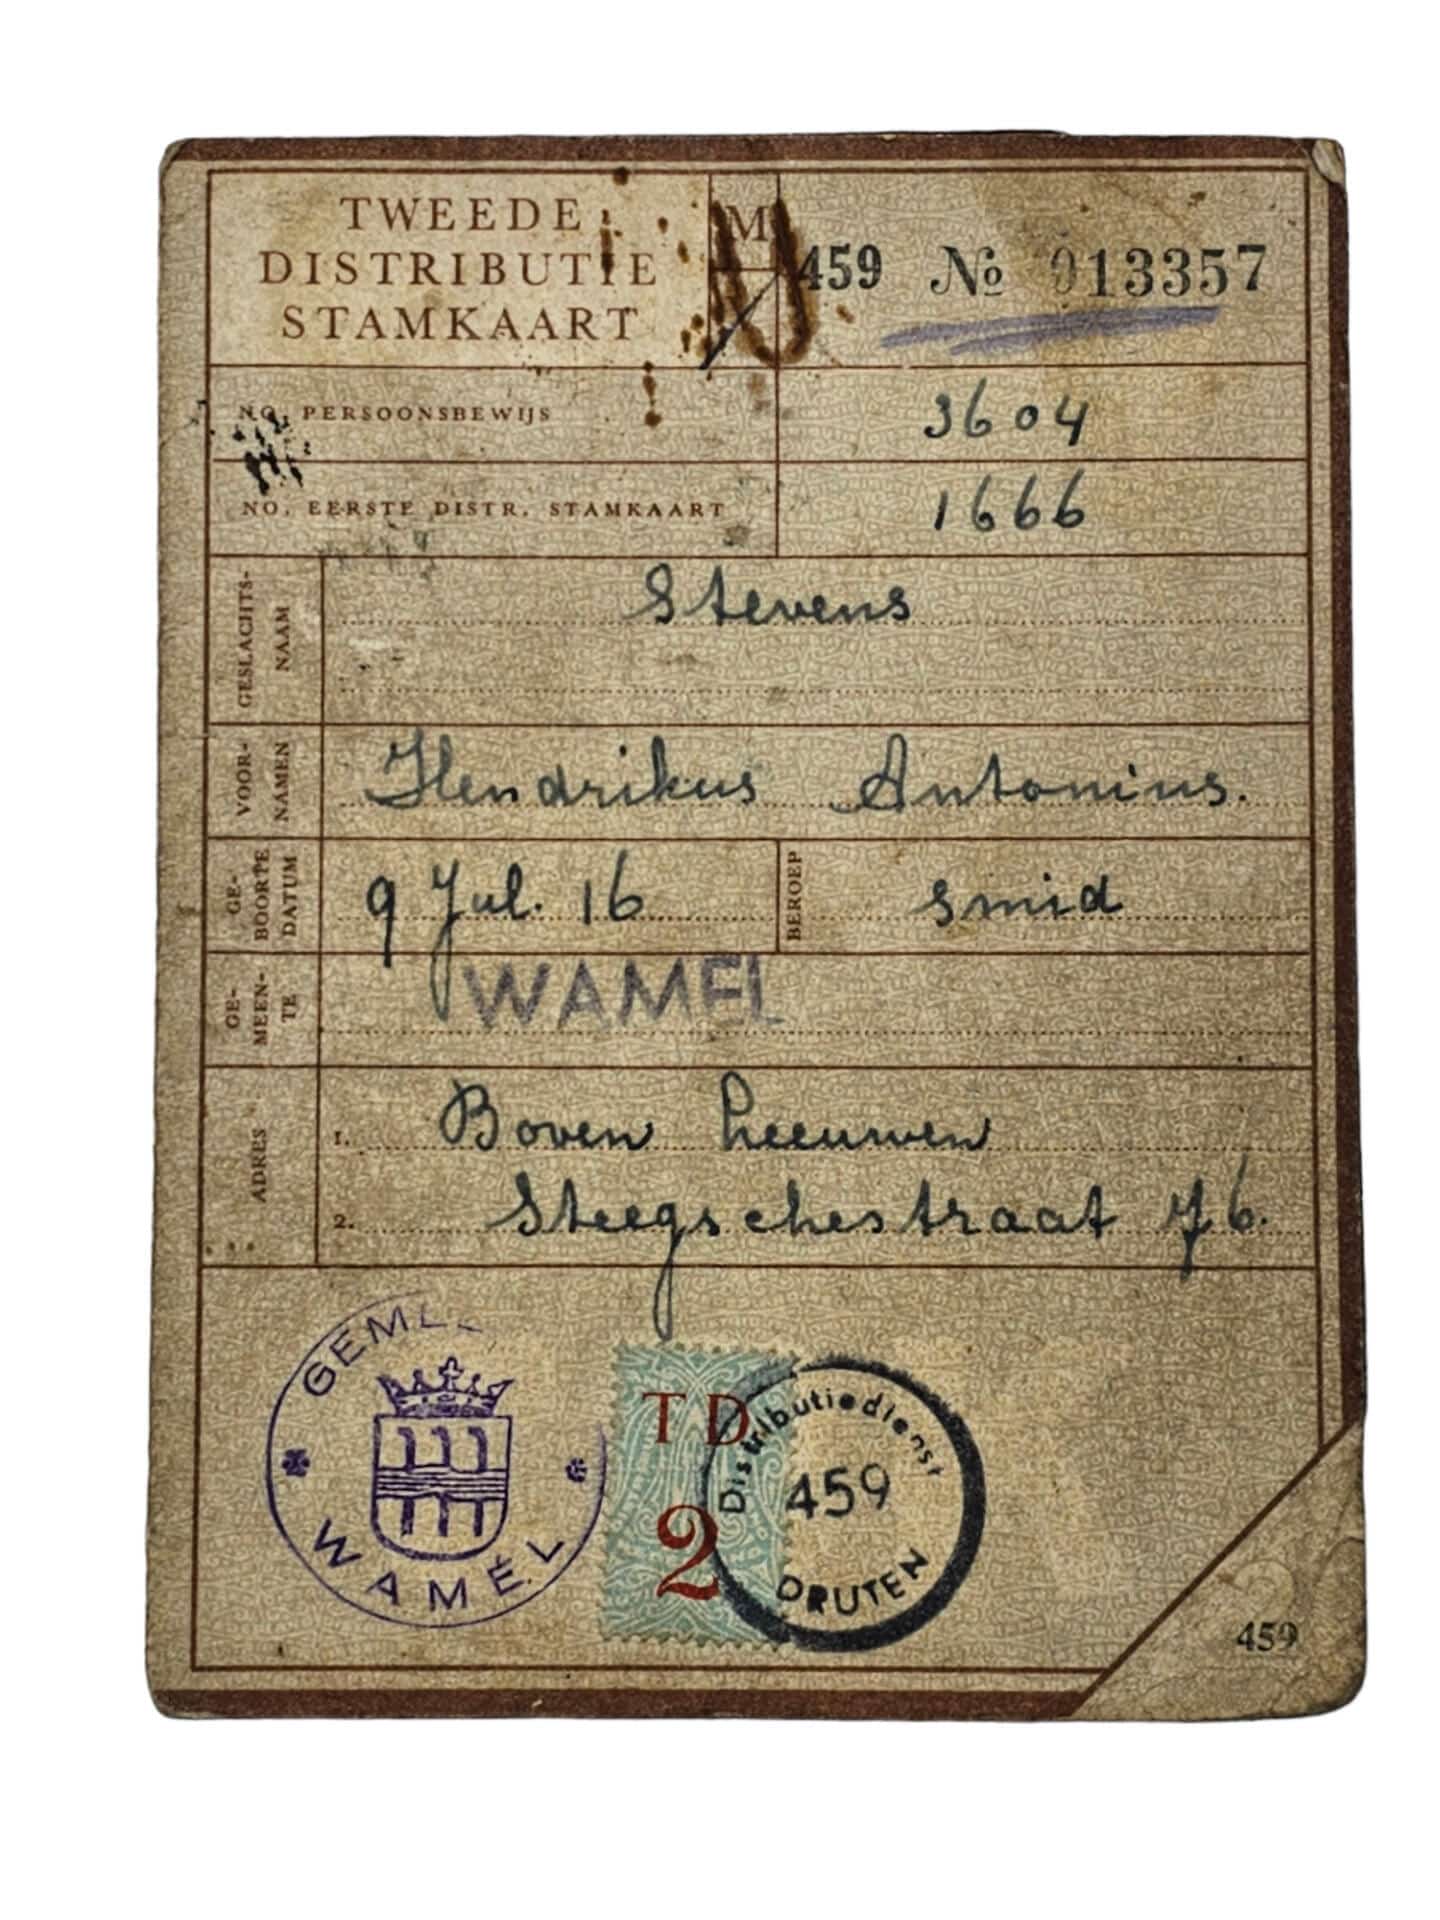 TWEEDE
DISTRIBUTIE
STAMKAART
M
459 № 013357
NO. PERSOONSBEWIJS 3604
NO. EERSTE DISTR. STAMKAART 1666
GESLACHTS-
NAAM
Stevens
VOOR-
NAMEN
Hendrikus Antonius.
GE-
BOORTE
DATUM
9 Jul. 16
BEROEP
smid
GE-
MEEN-
TE
WAMEL
ADRES
1. Boven Leeuwen
2. Steegschestraat 76.
WAMEL
TD
2
Distributiedienst
459
DRUTEN
459